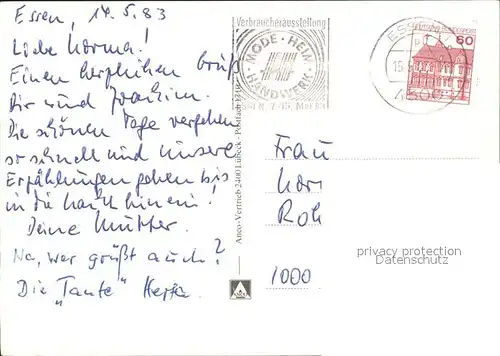 Essen, 14.5.83
Liebe Norma!
Einen herzlichen Gruß
Dir und Joachim.
Die schönen Tage vergehen
so schnell und unsere
Erzählungen gehen bis
in die Nacht hinein!
Deine Mutter.
Na, wer grüßt auch?
Die "Tante" Herta.
Verbraucherausstellung
MODE · HEIM
HANDWERK
Anco-Vertrieb 2400 Lübeck · Postfach
ESSEN
15.
4300
DEUTSCHE BUNDESPOST
60
Frau
Nor
Roh
1000
privacy protection
Datenschutz